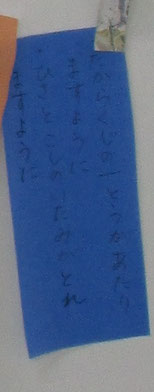 たからくじの一とうがあたり
ますように
・ひざとこしのいたみがとれ
ますように